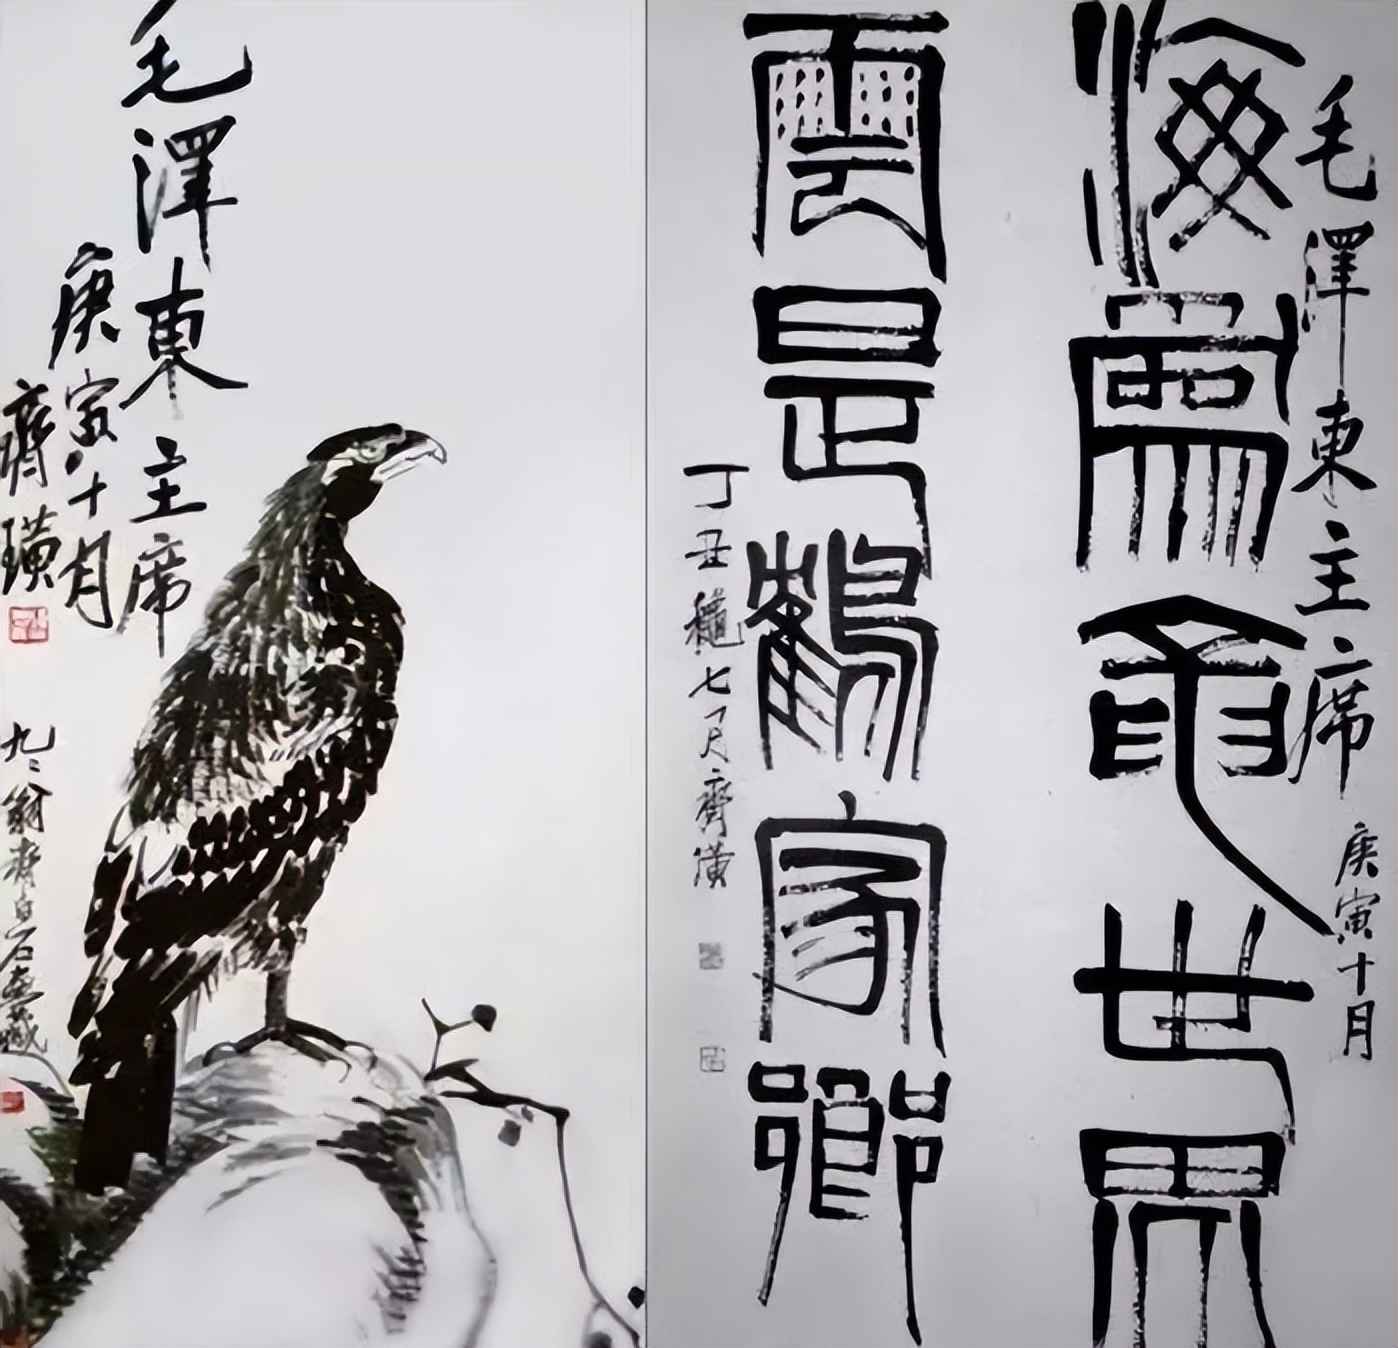 毛澤東主席 庚寅十月
海爲龍世界
雲是鶴家鄉
丁丑龝七月齊璜
毛澤東主席
庚寅十月
齊璜
九二翁齊白石畫藏